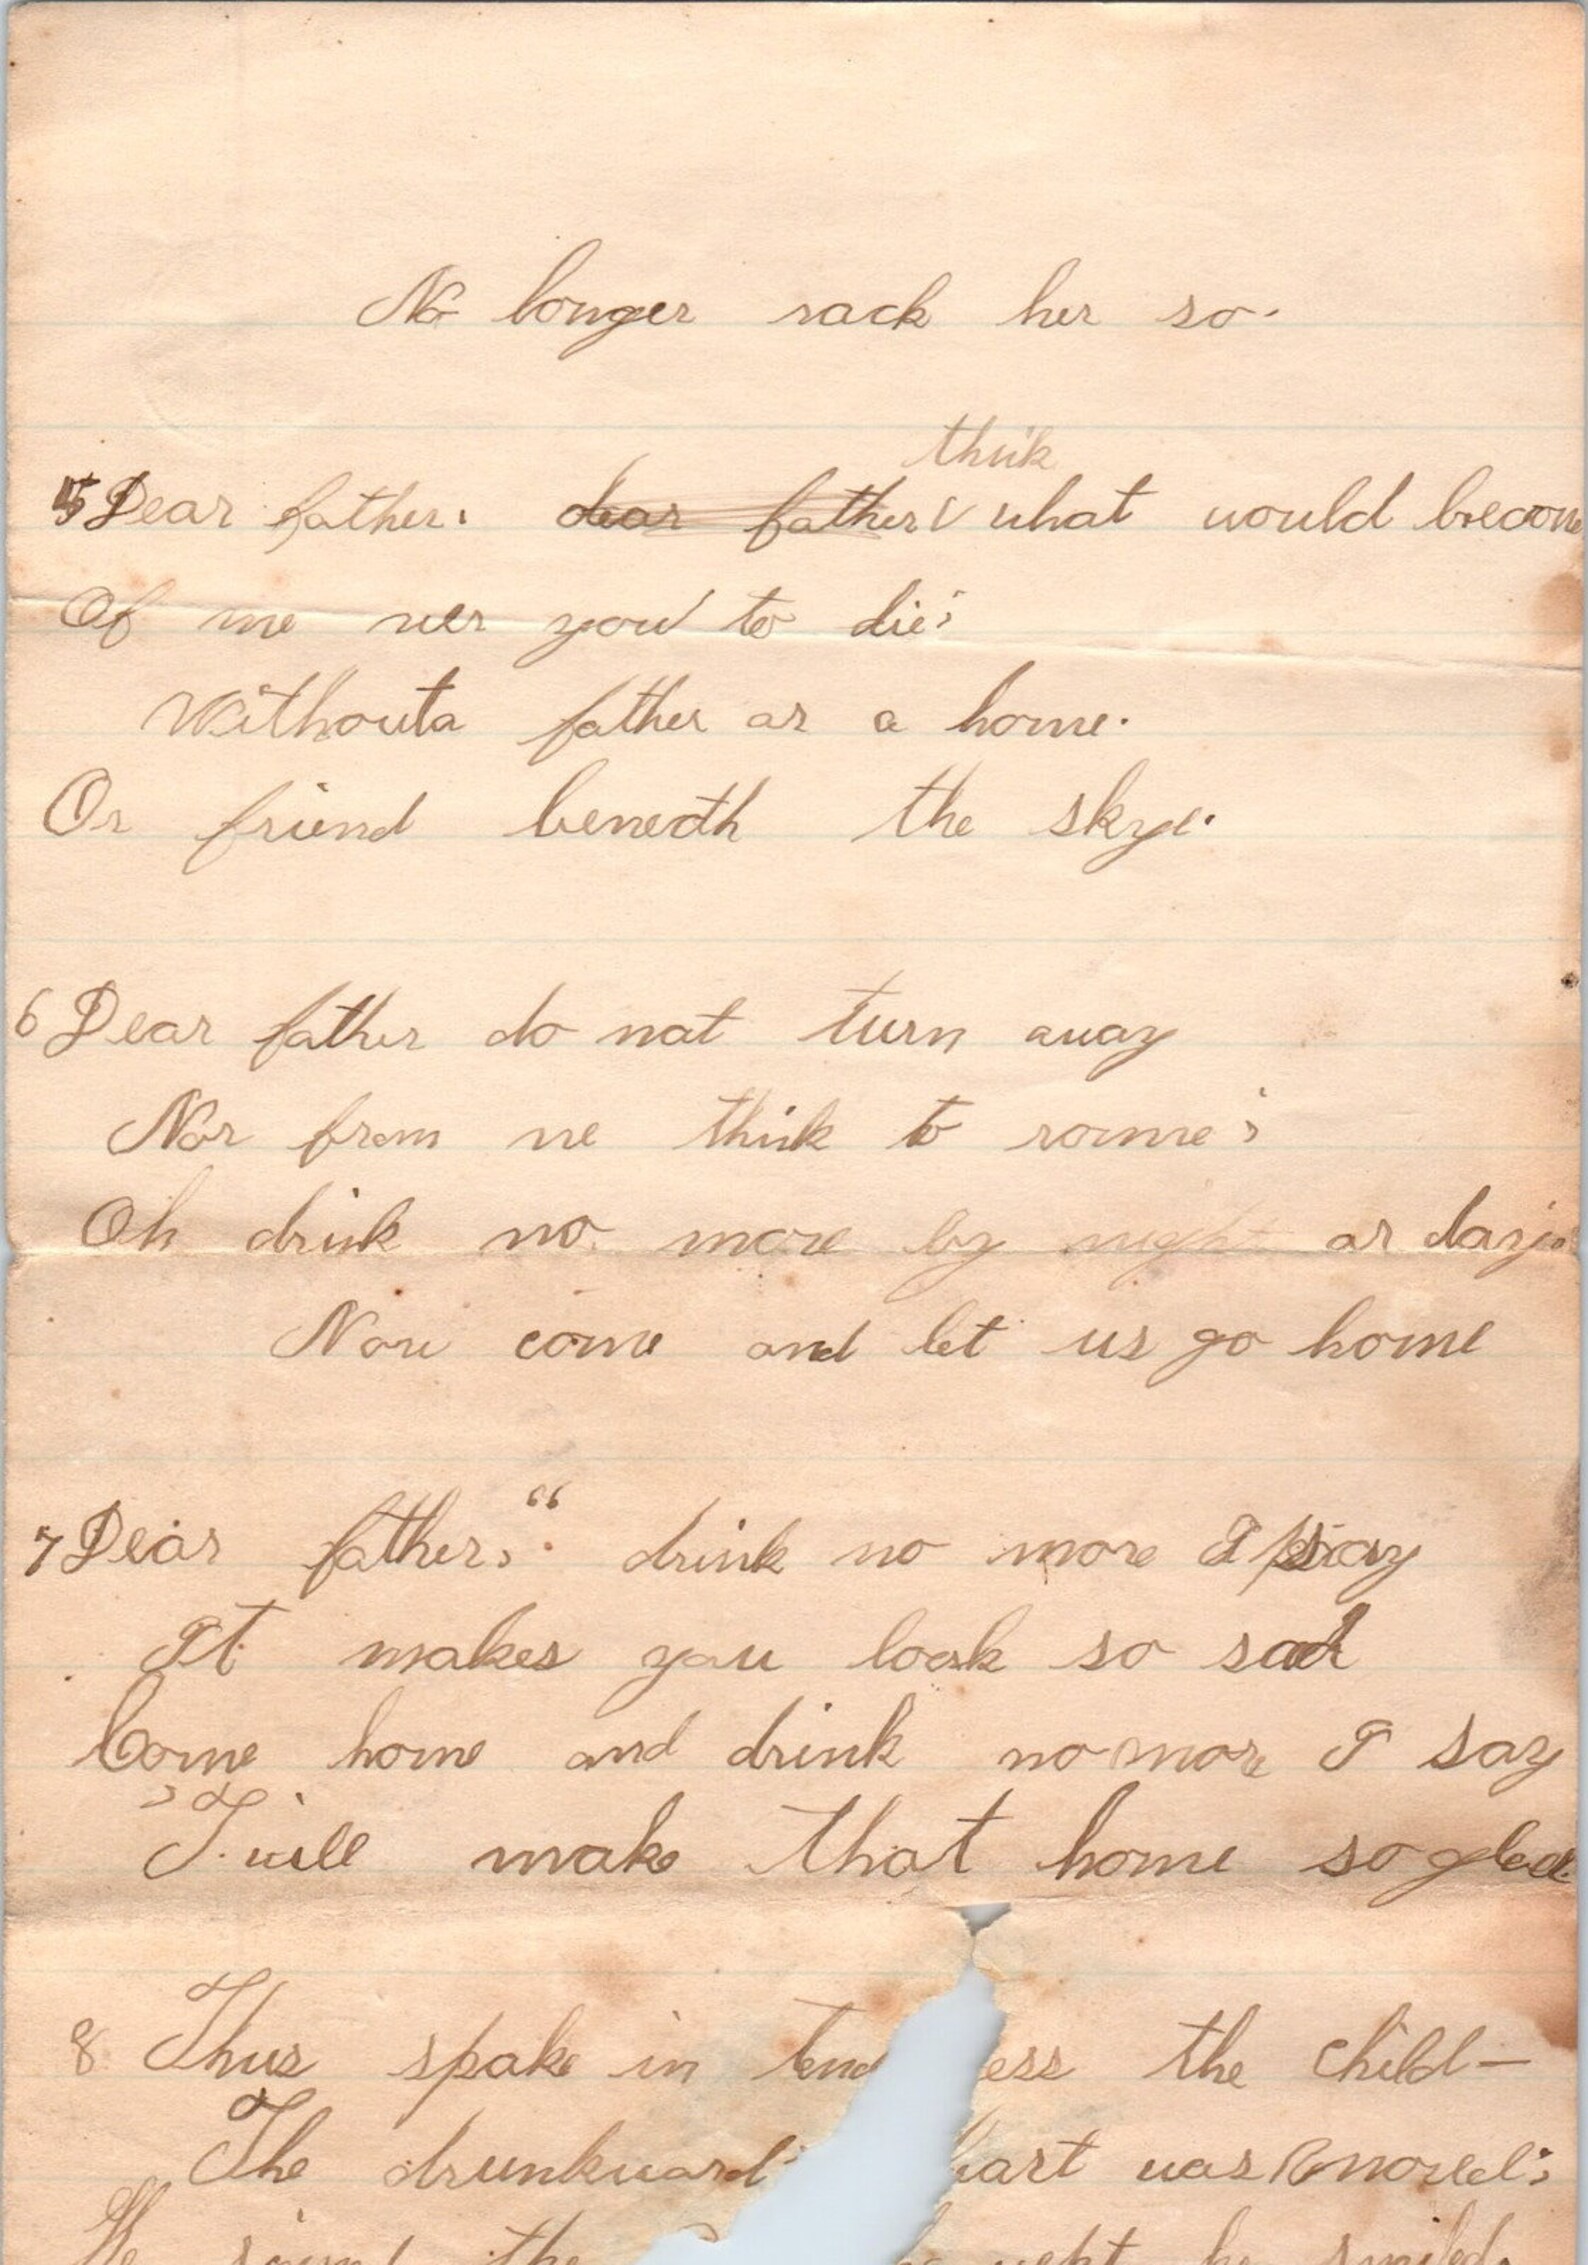 No longer rack her so.
think
5 Dear father. dear father what would become
Of me wer you to die;
Withouta father or a home.
Or friend beneath the skye.
6 Dear father do not turn away
Nor from me think to rome;
Oh drink no more by night or day.
Now come and let us go home
7 Dear father, " drink no more I say
It makes you look so sad
Come home and drink no more I say
I will make that home so glad
8 Thus spake in tend ess the child—
The drunkward' hart was moved;
He the wept he smiled